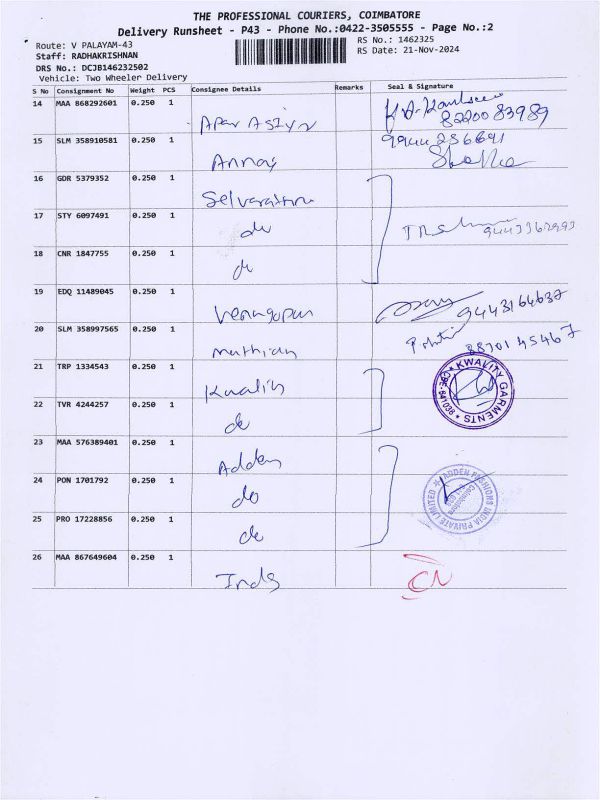 THE PROFESSIONAL COURIERS, COIMBATORE
Delivery Runsheet - P43 - Phone No.:0422-3505555 - Page No.:2
Route: V PALAYAM-43
RS No.: 1462325
Staff: RADHAKRISHNAN
RS Date: 21-Nov-2024
DRS No.: DCJB146232502
Vehicle: Two Wheeler Delivery
S No Consignment No Weight PCS Consignee Details Remarks Seal & Signature
14 MAA 868292601 0.250 1
8220083989
15 SLM 358910581 0.250 1
Annai
16 GDR 5379352 0.250 1
17 STY 6097491 0.250 1
do
18 CNR 1847755 0.250 1
do
19 EDQ 11489045 0.250 1
Venugopan 9443164637
20 SLM 358997565 0.250 1
8870145467
21 TRP 1334543 0.250 1
Kwality
KWALITY GARMENTS
CBE-641038
22 TVR 4244257 0.250 1
do
23 MAA 576389401 0.250 1
Adden
24 PON 1701792 0.250 1
do
ADDEN FASHIONS INDIA PRIVATE LIMITED
Coimbatore
25 PRO 17228856 0.250 1
do
26 MAA 867649604 0.250 1
Inds CN